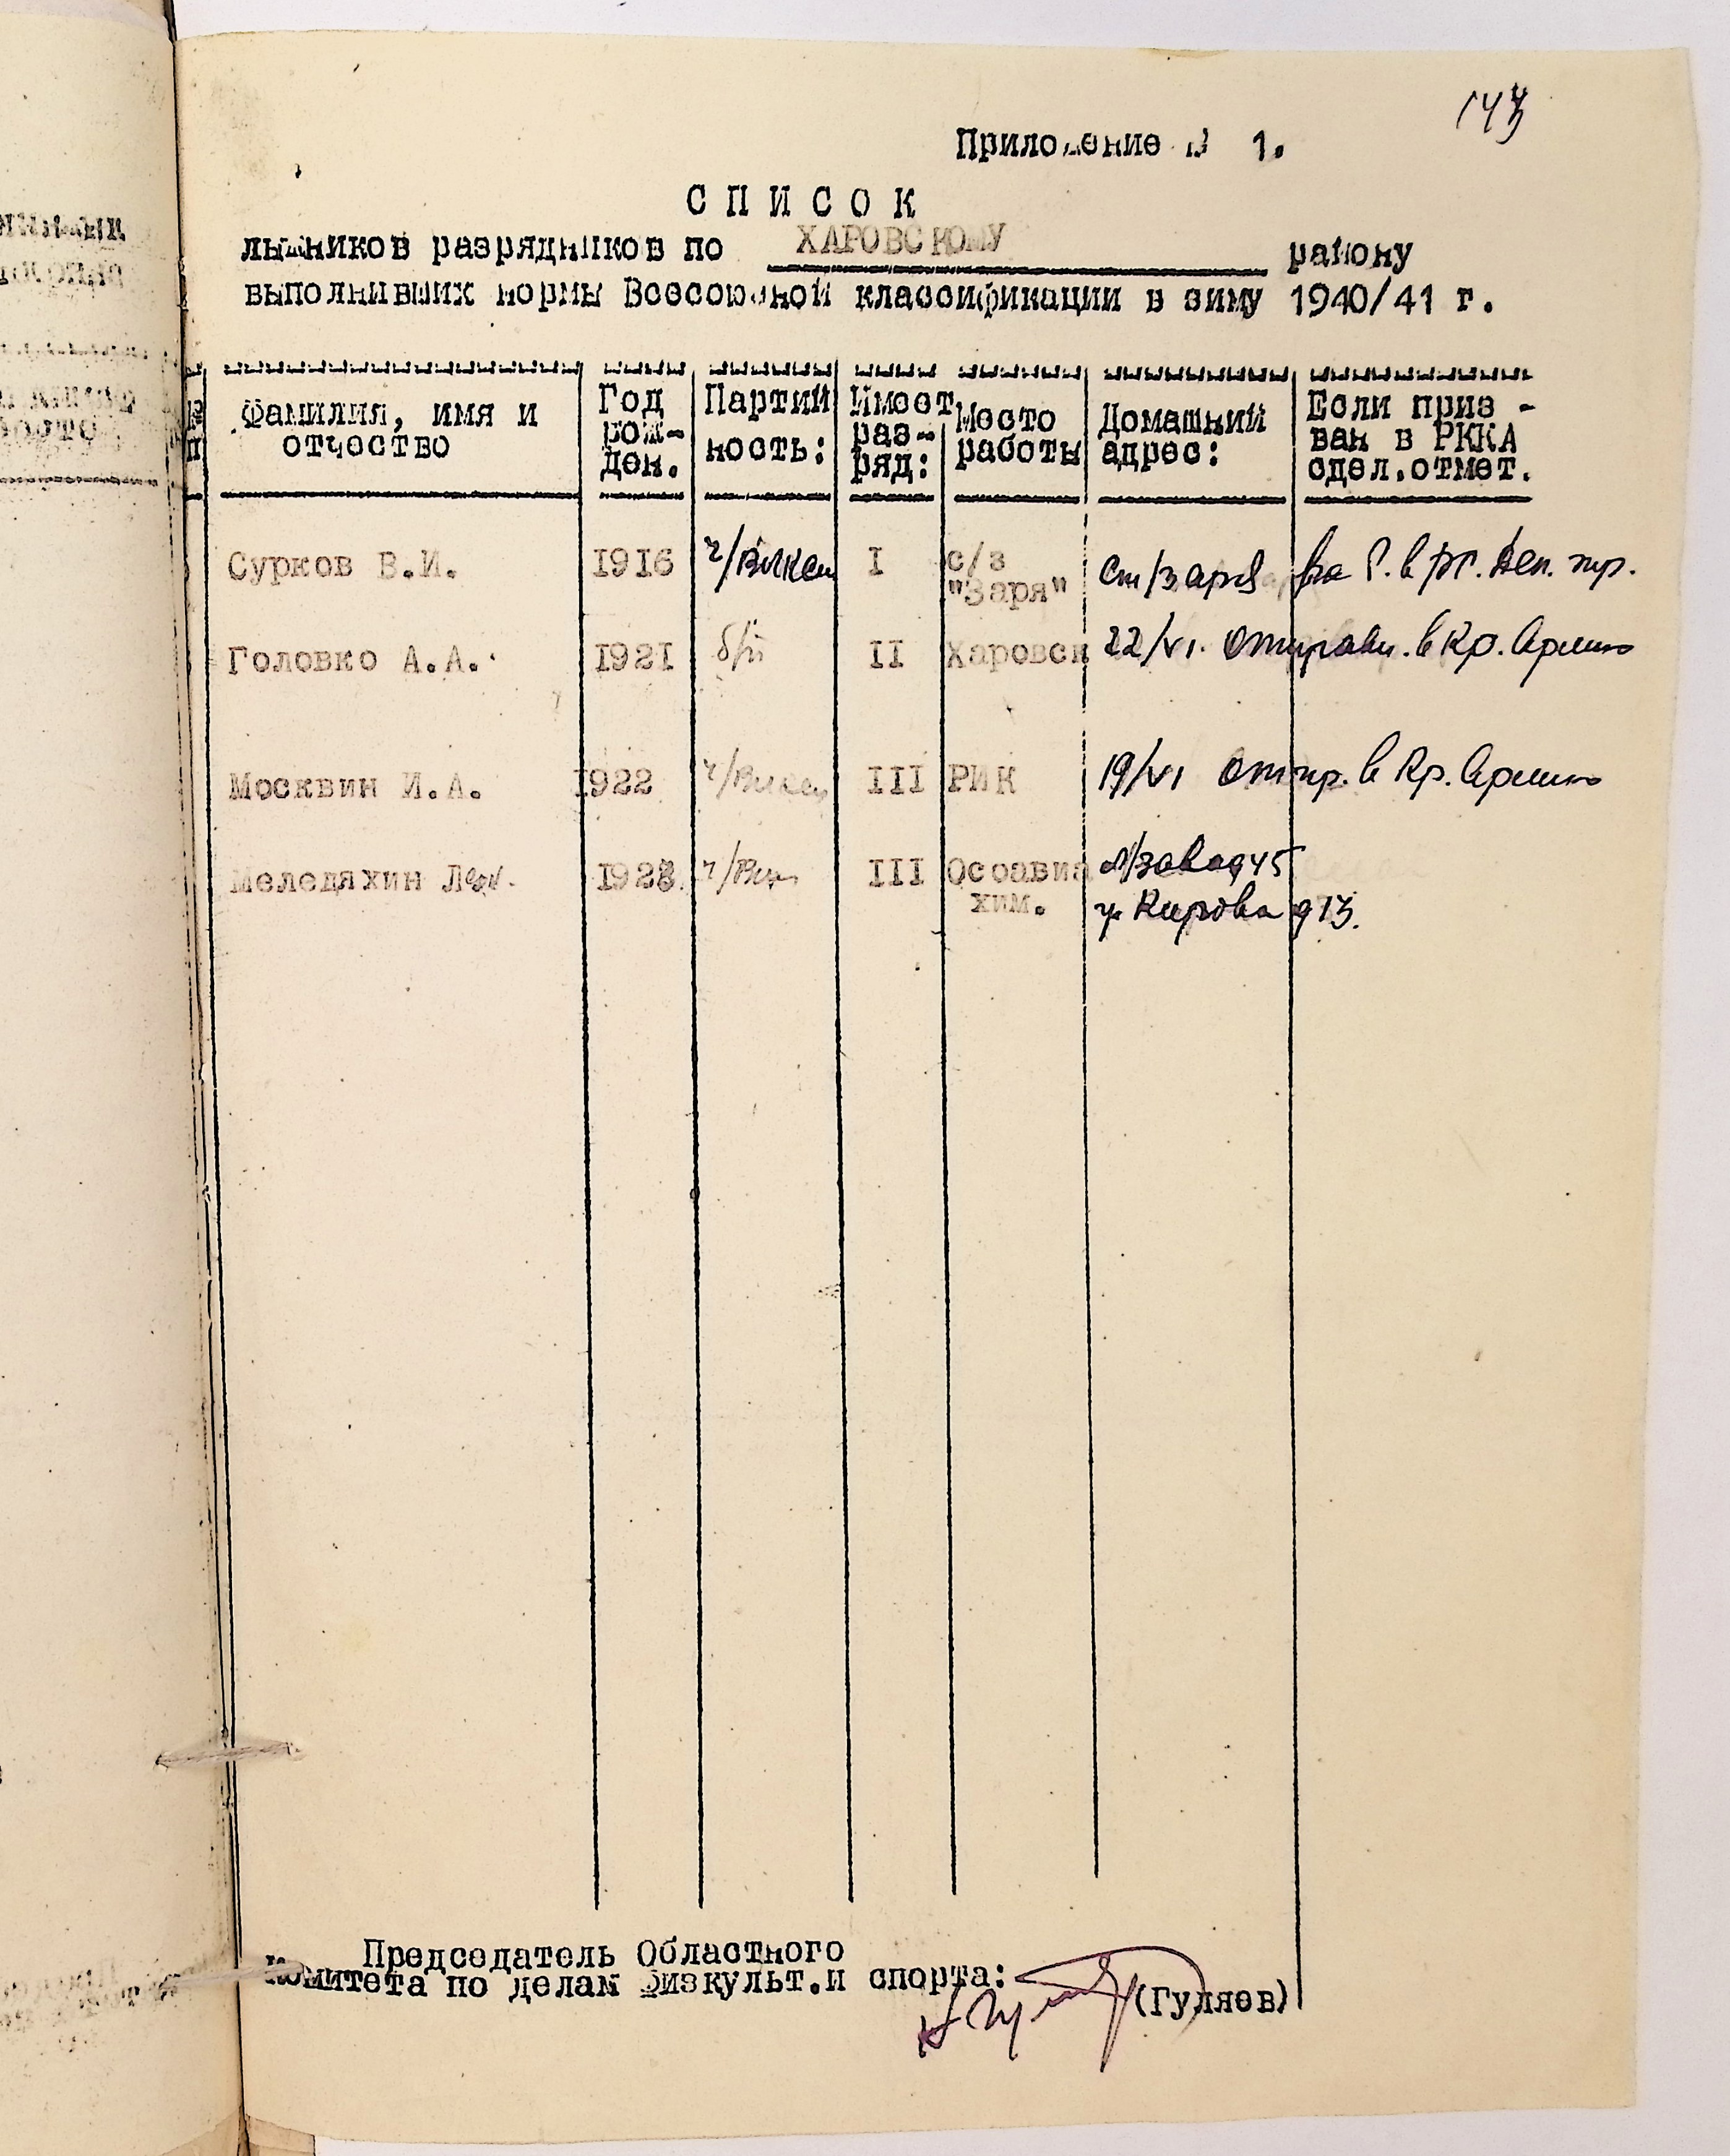 143
Приложение № 1.
СПИСОК
лыжников разрядников по ХАРОВСКОМУ району
выполнивших нормы Всесоюзной классификации в зиму 1940/41 г.
Фамилия, имя и отчество | Год рож-ден. | Партий ность: | Имеет раз-ряд: | Место работы | Домашний адрес: | Если приз - ван в РККА сдел.отмет.
Сурков В.И. 1916 ч/Влксм I с/з "Заря" ст/заря
Головко А.А. 1921 б/п II Харовск 22/VI. Отправл. в Кр. Армию
Москвин И.А. 1922 ч/Влксм III РИК 19/VI Отпр. в Кр. Армию
Меледяхин 1923 III Осоавиа хим. л/завод 45
ул Кирова д 13.
Председатель Областного
Комитета по делам физкульт.и спорта: (Гуляев)